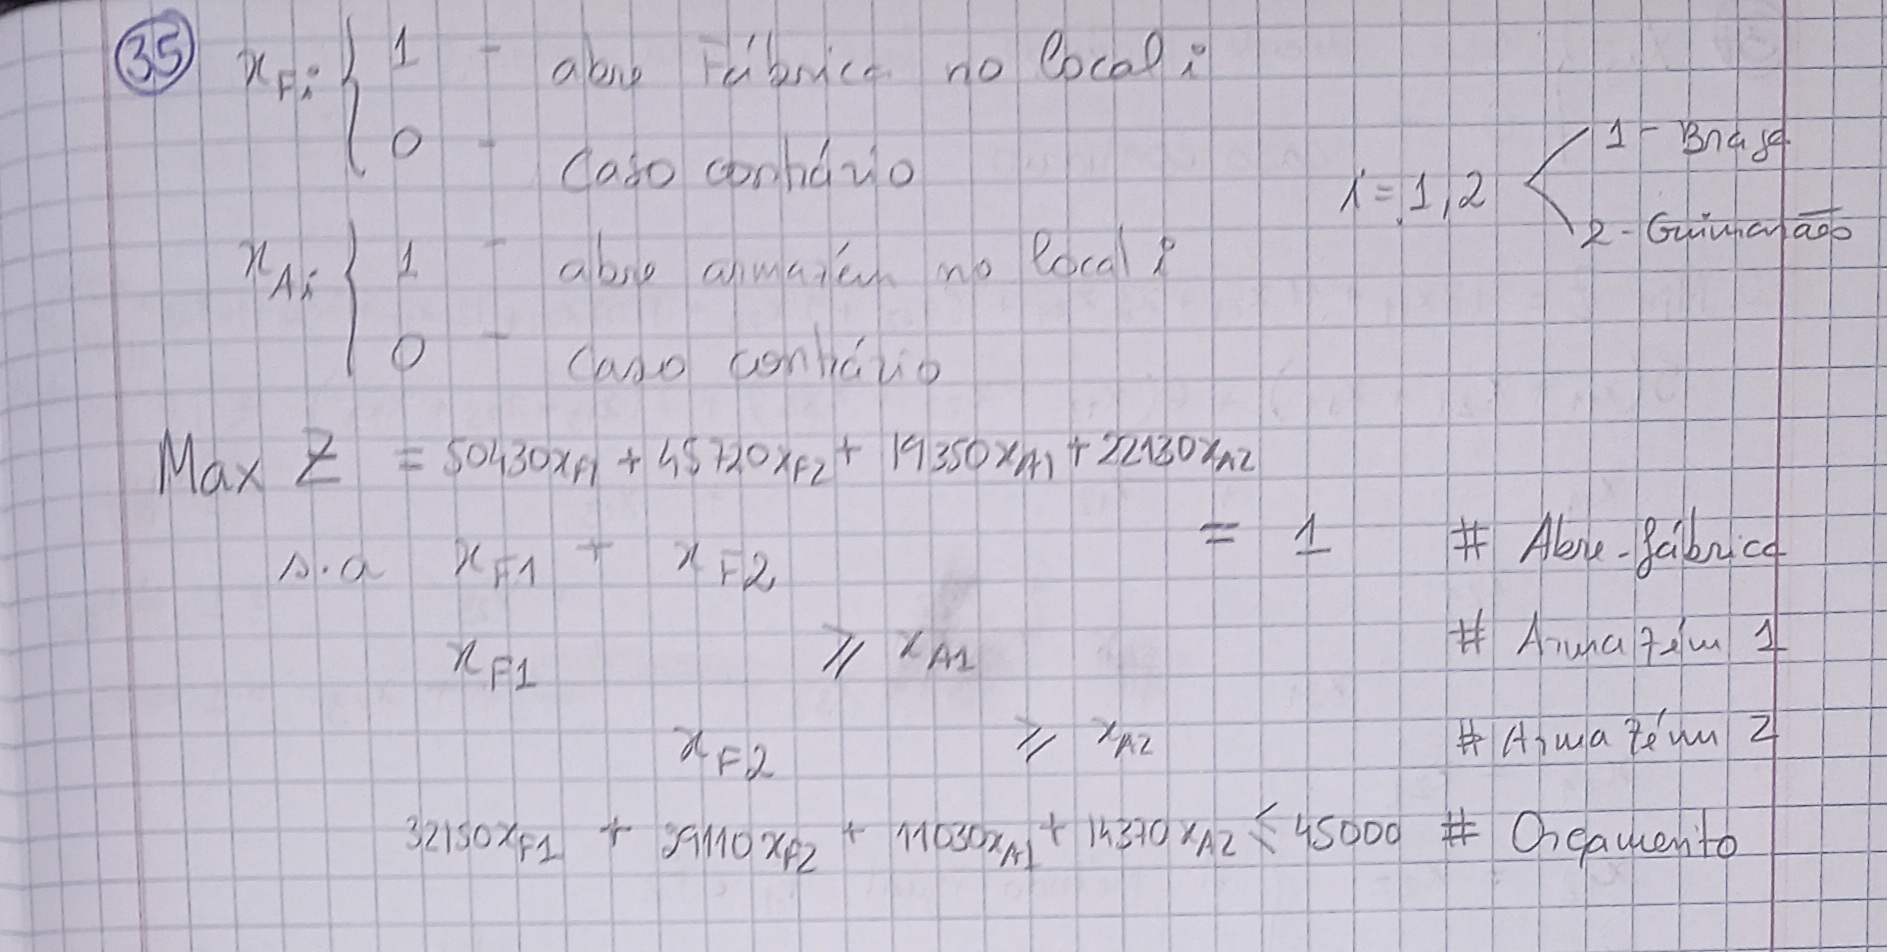 35 xFi { 1 - abre Fábrica no local i
0 - Caso contrário
i = 1,2 < 1 - Braga
2 - Guimarães
xAi { 1 - abre armazém no local i
0 - Caso contrário
Max Z = 50430xF1 + 45720xF2 + 19350xA1 + 22130xA2
s.a xF1 + xF2 = 1 # Abre-fábrica
xF1 ⩾ xA1 # Armazém 1
xF2 ⩾ xA2 # Armazém 2
32150xF1 + 29110xF2 + 11030xA1 + 14370xA2 ≤ 45000 # Orçamento